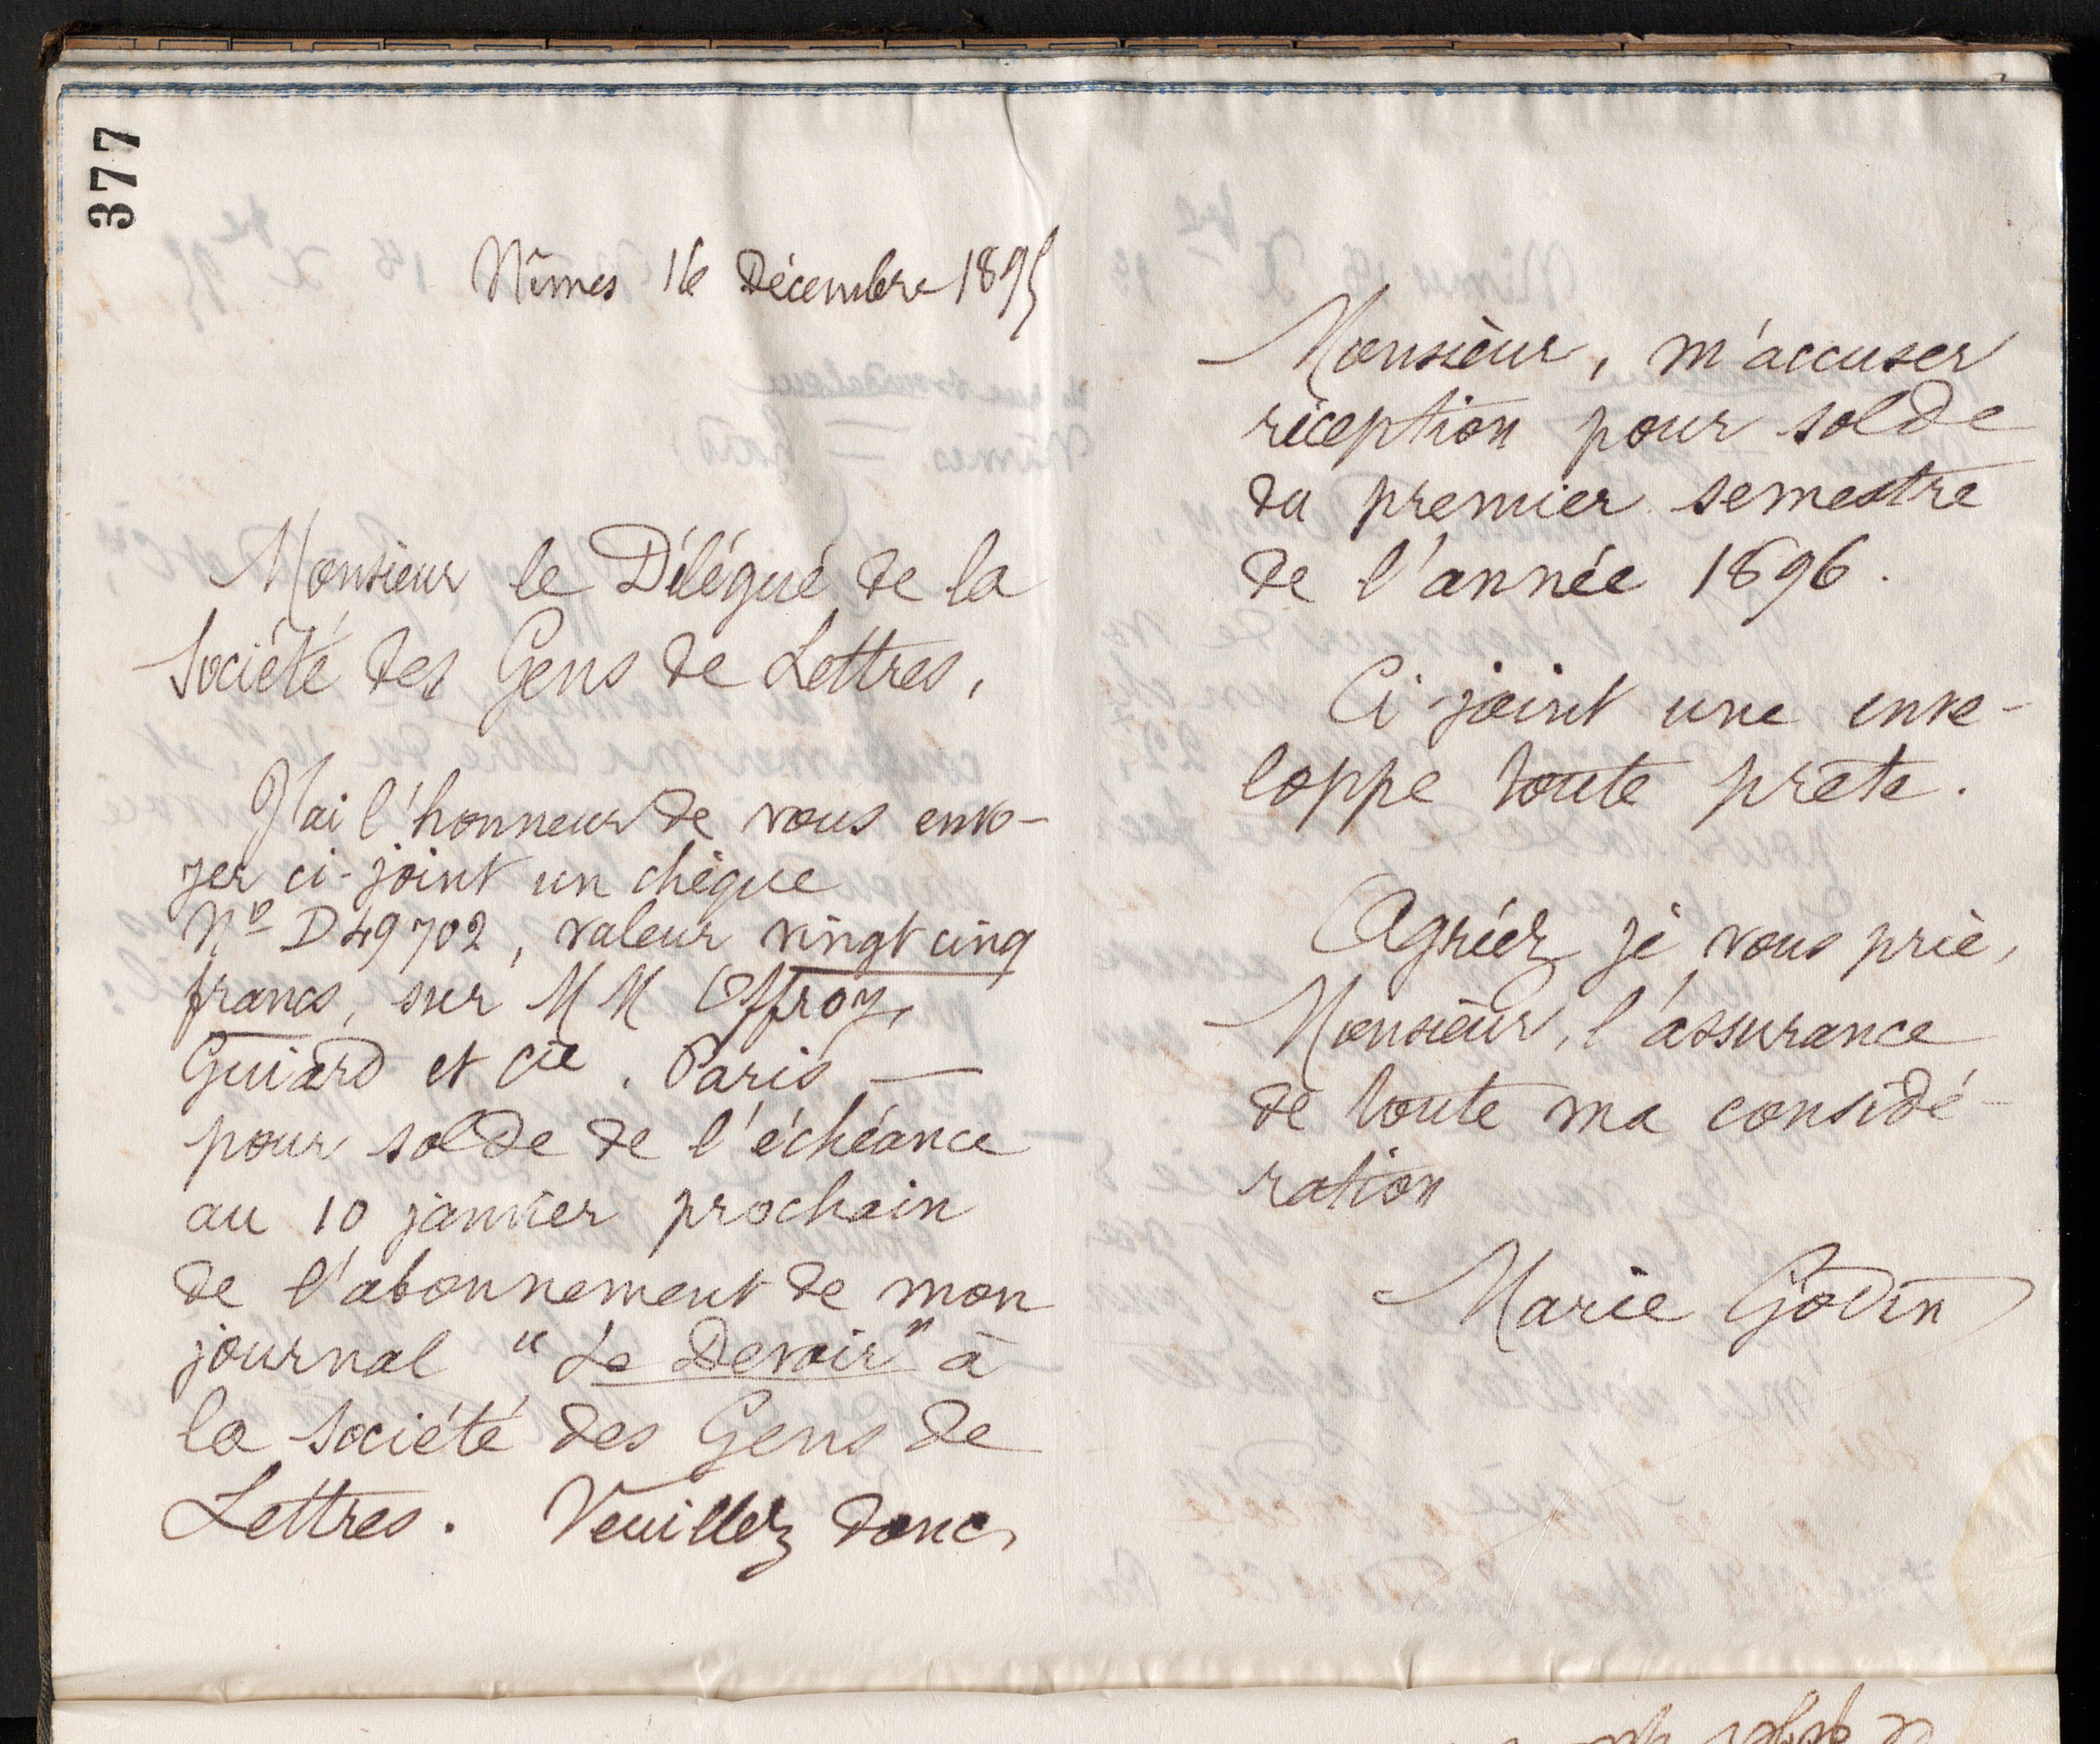 377
Nîmes 16 Décembre 1895
Monsieur le Délégué de la
Société des Gens de Lettres,
J'ai l'honneur de vous envo-
yer ci-joint un chèque
Nº D49702, valeur vingt cinq
francs, sur MM Offroy,
Guiard et Cie. Paris —
pour solde de l'échéance
au 10 janvier prochain
de l'abonnement de mon
journal "Le Devoir" à
la Société des Gens de
Lettres. Veuillez donc,
Monsieur, m'accuser
réception pour solde
du premier semestre
de l'année 1896.
Ci-joint une enve-
loppe toute prête.
Agréez je vous prie,
Monsieur, l'assurance
de toute ma considé-
ration
Marie Godin